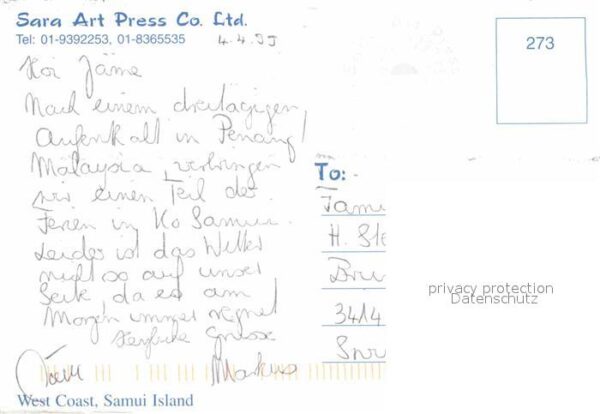 Sara Art Press Co. Ltd.
Tel: 01-9392253, 01-8365535
4.4.99
273
Hoi Jäme
Nach einem dreitägigen
Aufenthalt in Penang/
Malaysia verbringen
wir einen Teil der
Ferien in Ko Samui.
Leider ist das Wetter
nicht so auf unser
Seite da es am
Morgen immer regnet
Herzliche Grüsse
Markus
To:
H. Ste
Bru
3414
privacy protection
Datenschutz
West Coast, Samui Island